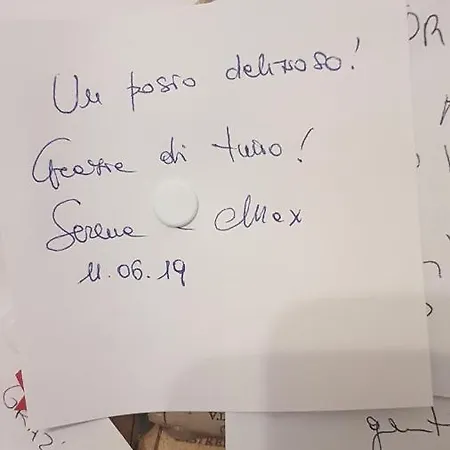 Un posto delizioso!
Grazie di tutto!
Serena e Max
11.06.19